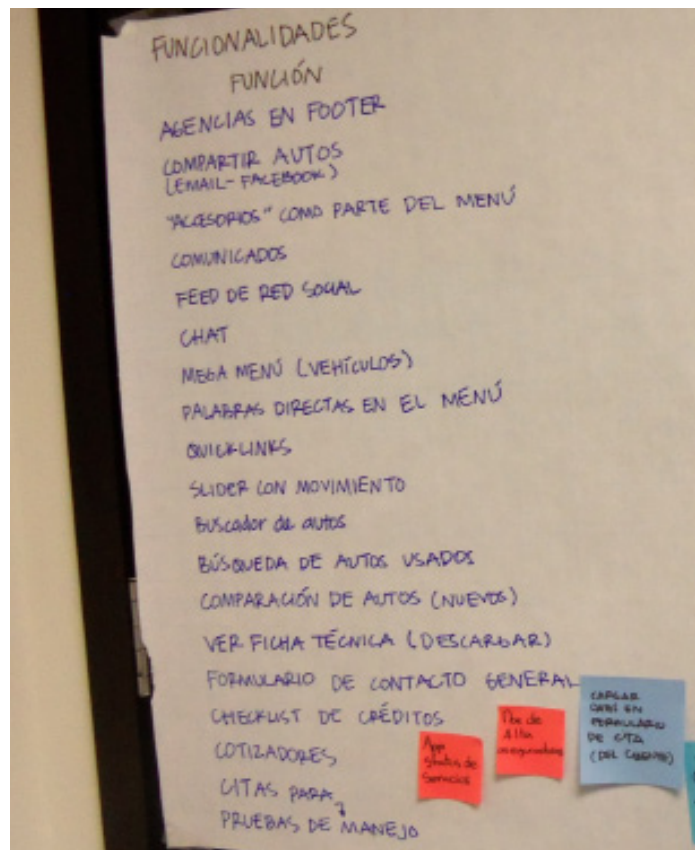 FUNCIONALIDADES
FUNCIÓN
AGENCIAS EN FOOTER
COMPARTIR AUTOS
(EMAIL-FACEBOOK)
"ACCESORIOS" COMO PARTE DEL MENÚ
COMUNICADOS
FEED DE RED SOCIAL
CHAT
MEGA MENÚ (VEHÍCULOS)
PALABRAS DIRECTAS EN EL MENÚ
QUICKLINKS
SLIDER CON MOVIMIENTO
Buscador de autos
BÚSQUEDA DE AUTOS USADOS
COMPARACIÓN DE AUTOS (NUEVOS)
VER FICHA TÉCNICA (DESCARGAR)
FORMULARIO DE CONTACTO GENERAL
CHECKLIST DE CRÉDITOS
COTIZADORES
CITAS PARA
PRUEBAS DE MANEJO
App
status de
Servicios
de
Allia
aseguradoras
CARGAR
EN
FORMULARIO
DE CITA
(DEL CLIENTE)